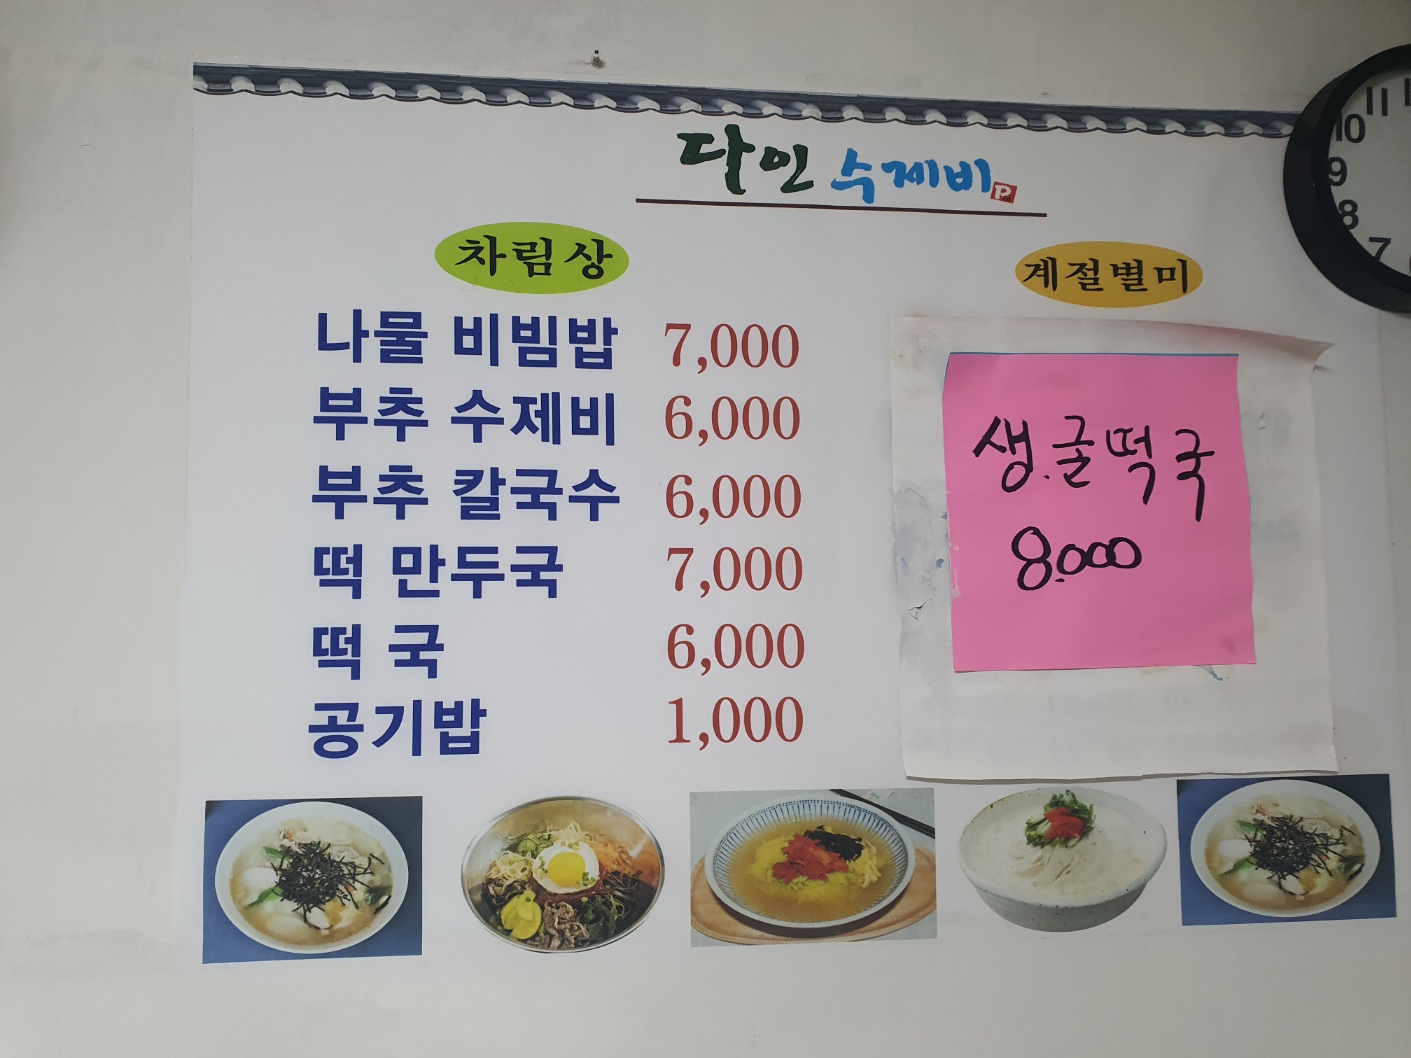 다인 수제비
차림상
나물 비빔밥 7,000
부추 수제비 6,000
부추 칼국수 6,000
떡 만두국 7,000
떡 국 6,000
공기밥 1,000
계절별미
생.굴떡국
8.000
11
10
9
8
7